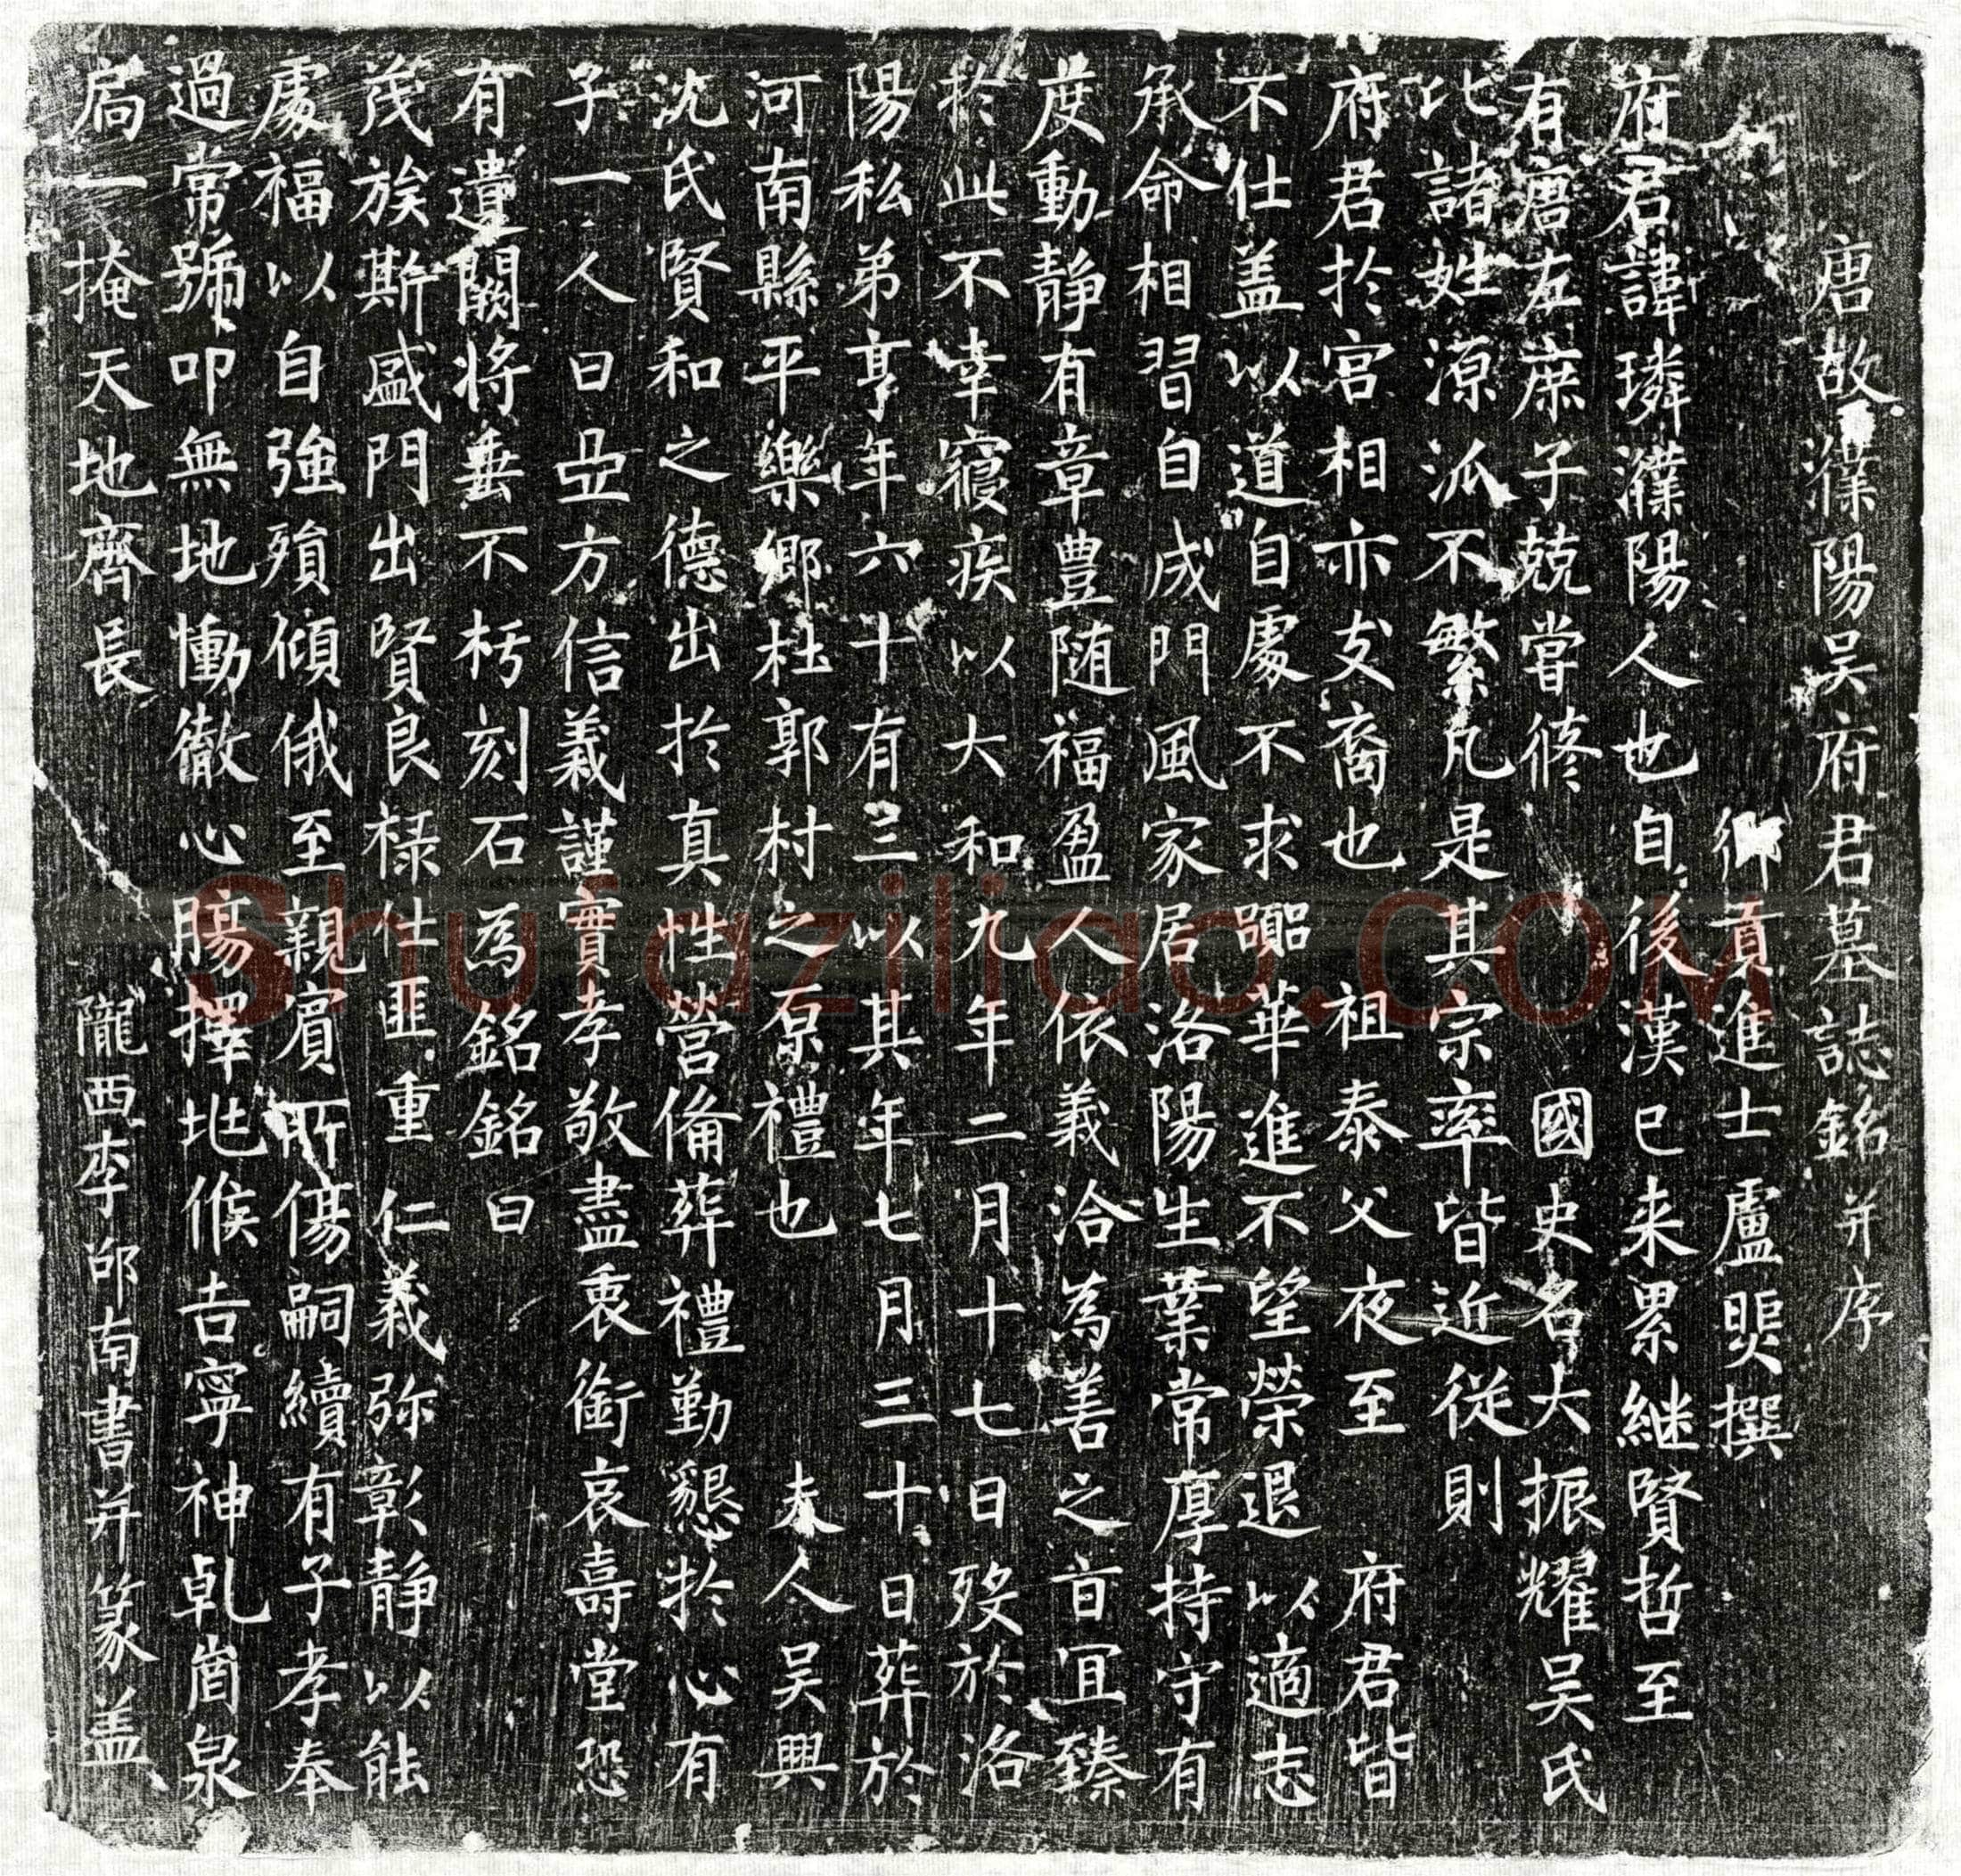 唐故濮陽吴府君墓誌銘并序
鄉貢進士盧㷸撰
府君諱璘濮陽人也自後漢已来累継賢哲至
有唐左庶子兢嘗修國史名大振耀吴氏
比諸姓源派不繁凡是其宗率皆近従則
府君於宫相亦支裔也祖泰父夜至府君皆
不仕盖以道自處不求躁華進不望榮退以適志
承命相習自成門風家居洛陽生業常厚持守有
度動静有章豊随福盈人依義洽為善之旨冝臻
於此不幸寝疾以大和九年二月十七日殁於洛
陽私弟享年六十有三以其年七月三十日葬於
河南縣平樂鄉杜郭村之原禮也夫人吴興
沈氏賢和之德出於真性營俻葬禮勤懇於心有
子一人曰亞方信義謹實孝敬盡衷銜哀壽堂恐
有遺闕将垂不朽刻石為銘銘曰
茂族斯盛門出賢良禄仕匪重仁義弥彰静以能
處福以自強殞傾俄至親賓所傷嗣續有子孝奉
過常號叩無地慟徹心腸擇地候吉寧神乹崗泉
扃一掩天地齊長隴西李郃南書并篆盖
Shufaziliao.COM